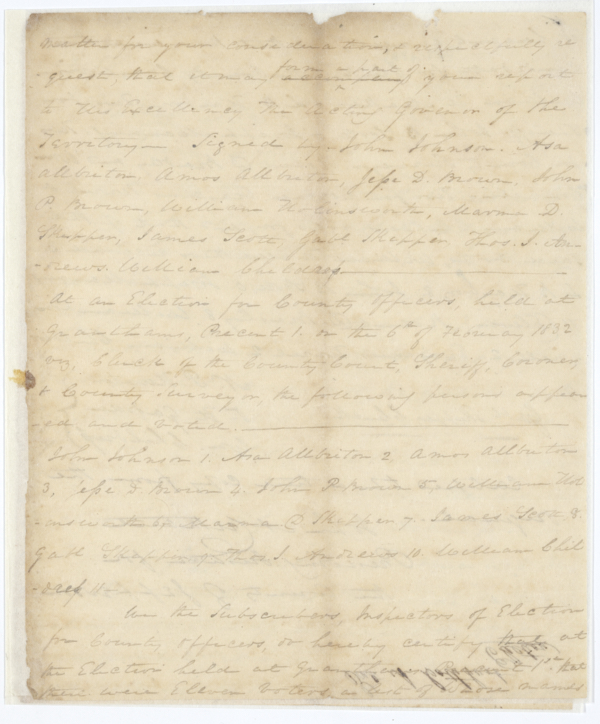 matter for your consideration, & respectfully re
-quest, that it may form a part of your report
to His Excellency The Acting Govinor of the
Territory— Signed by John Johnson. Asa
Allbriton. Amos Allbriton, Jesse D. Brown. John
P Brown, William Holinsworth, D.
Skipper, James Scott Gabl Skipper Thos. J. An-
-drews. William Childress
At an Election for County Officers, held at
Granthams, Precent 1. on the 6th of 1832
viz, Clerk of the County Court, Sheriff, Coroner
& County Surveyor, the following persons appear
-ed and Voted.
John Johnson 1. Asa Allbriton 2 Amos Allbriton
3, Jesse D Brown 4. John P Brown 5. William Hol
-insworth 6. Skipper 7. James Scott 8.
Gabl Skipper 9 Thos. J Andrews 10. William Chil
-dress 11—
We the Subscribers, Inspectors of Election
for County officers, do hereby certify that at
the Election held at Granthams 1st. that
there were Eleven Voters, a list of whose names